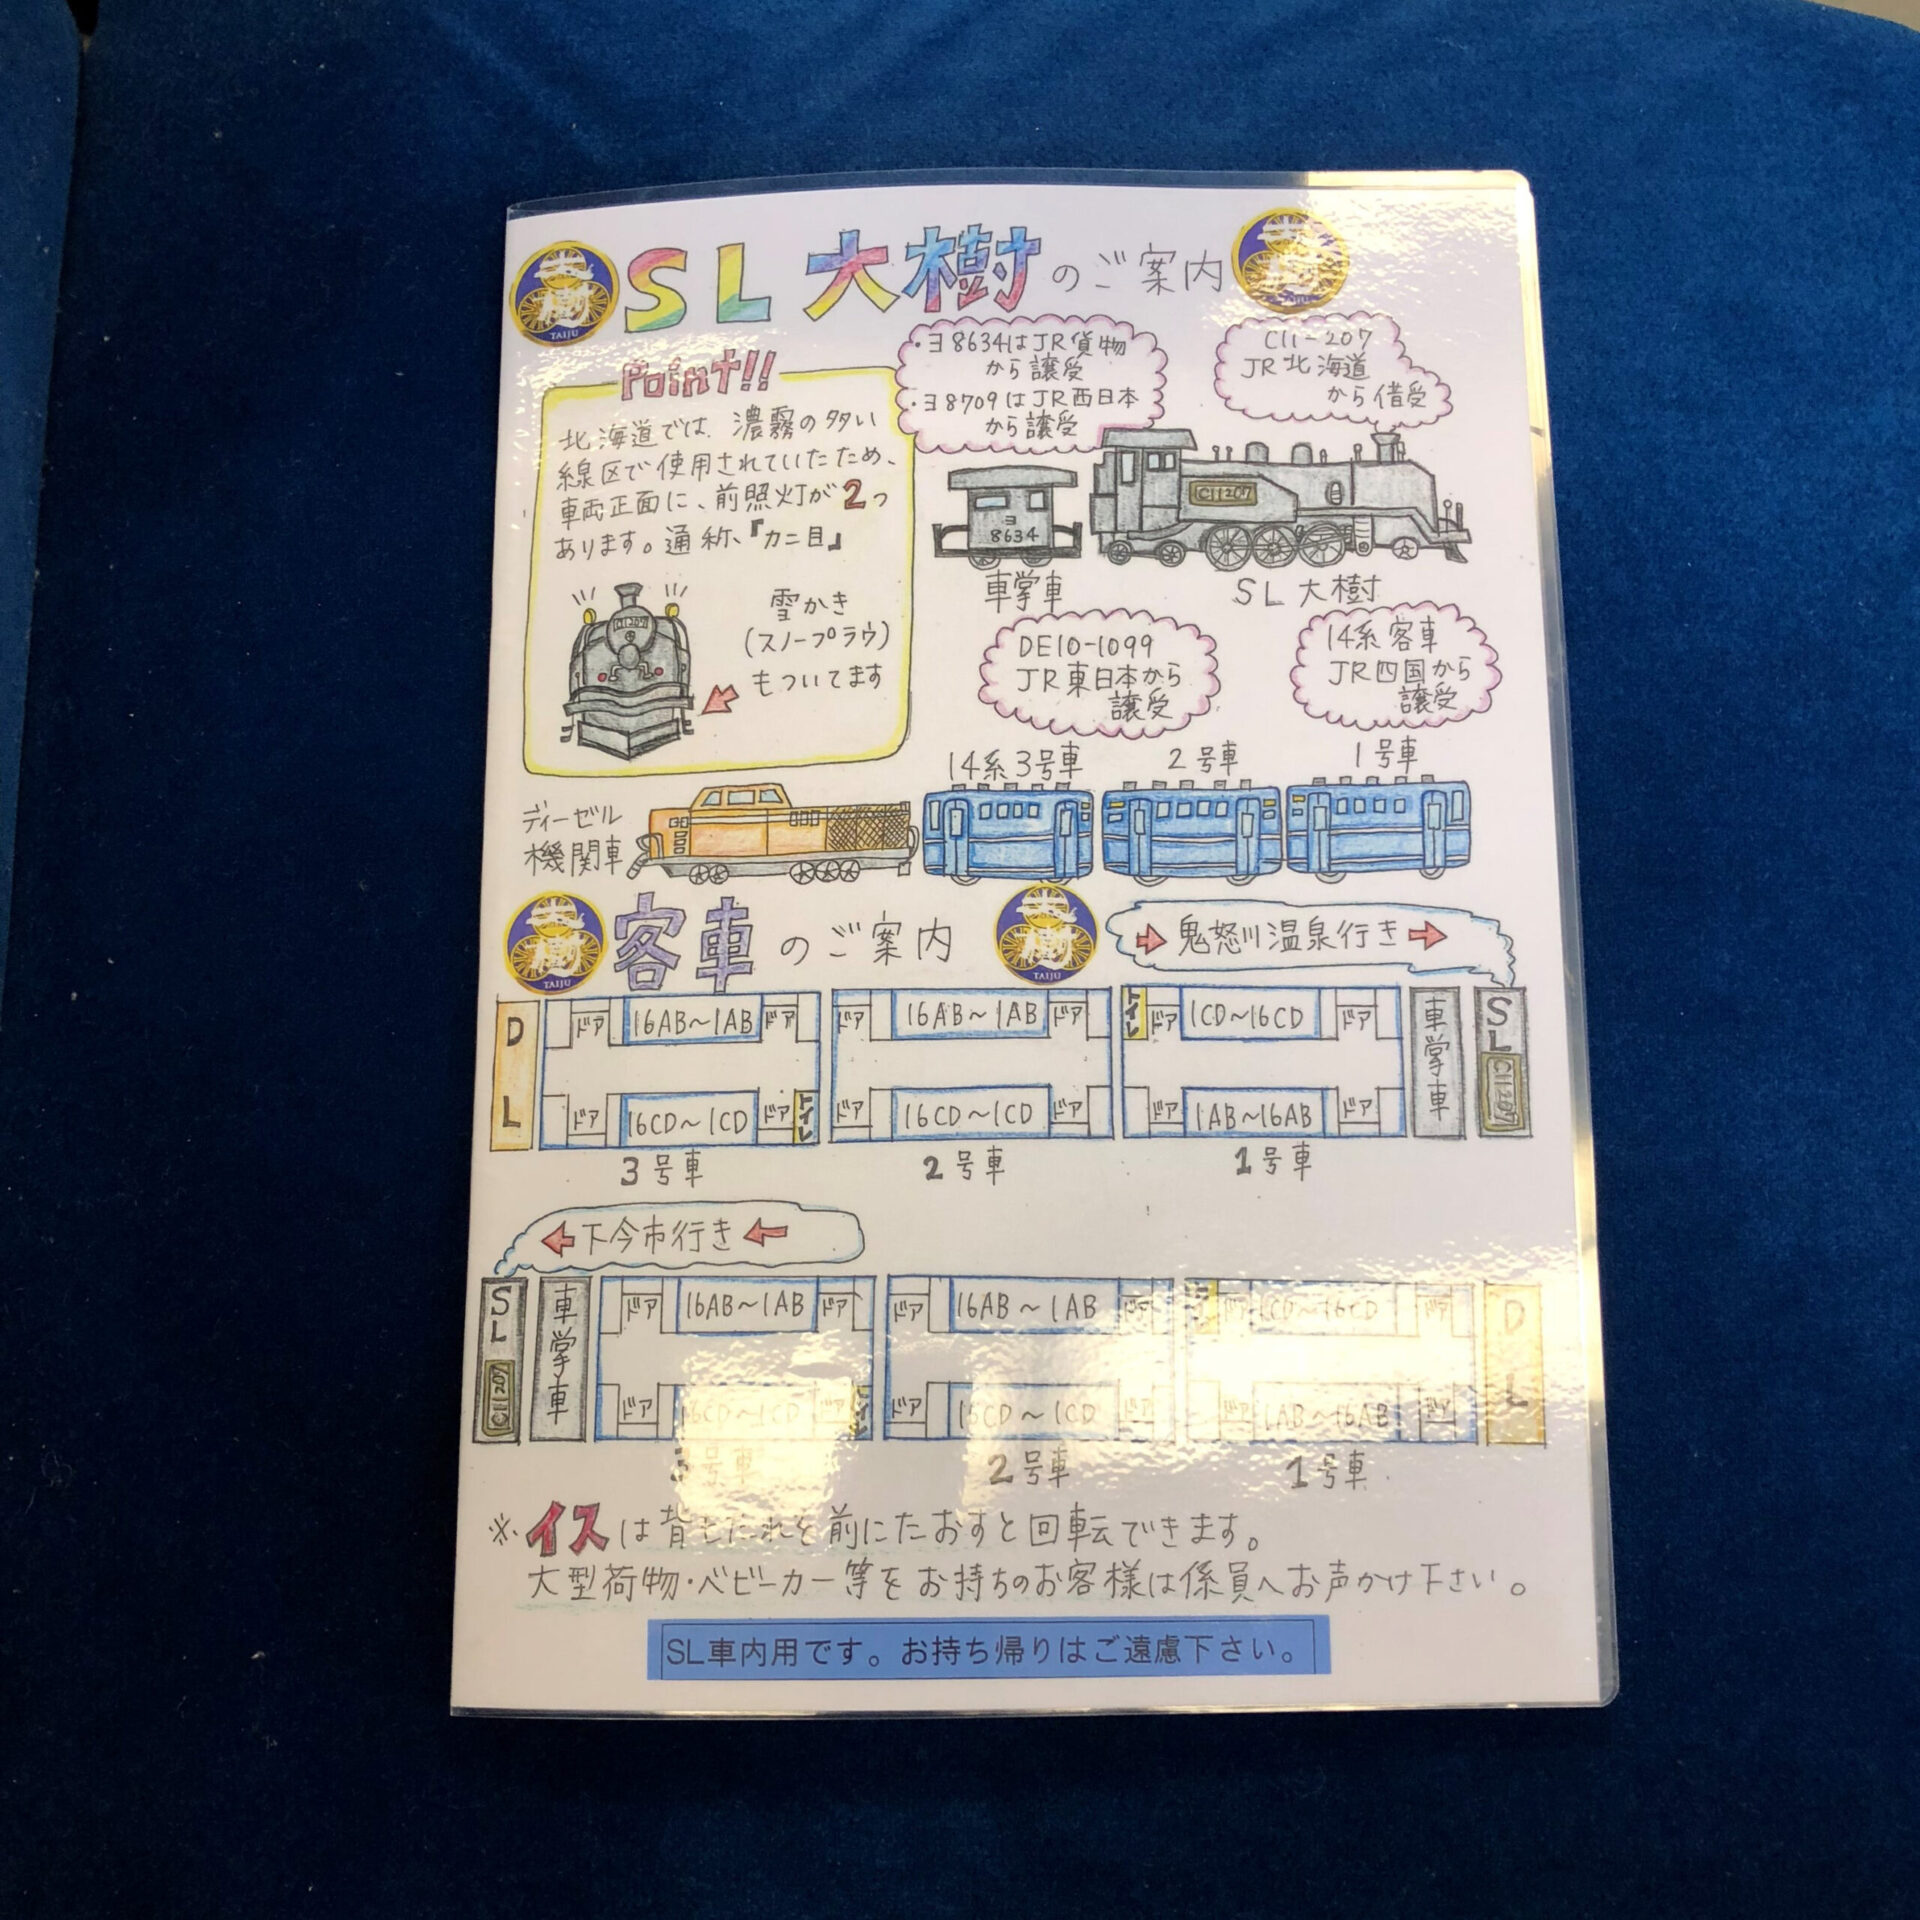 SL大樹のご案内
TAIJU
TAIJU
Point!!
北海道では、濃霧の多い
線区で使用されていたため、
車両正面に、前照灯が2つ
あります。通称、『カニ目』
C11207
雪かき
(スノープラウ)
もついてます
・ヨ8634はJR貨物
から譲受
・ヨ8709はJR西日本
から譲受
C11-207
JR北海道
から借受
ヨ
8634
C11207
車掌車
SL大樹
DE10-1099
JR東日本から
譲受
14系客車
JR四国から
譲受
ディーゼル
機関車
14系3号車
2号車
1号車
客車のご案内
TAIJU
TAIJU
鬼怒川温泉行き
DL
ドア 16AB～1AB ドア
ドア 16AB～1AB ドア
トイレ ドア 1CD～16CD ドア
車掌車
SL C11207
ドア 16CD～1CD ドア トイレ
ドア 16CD～1CD ドア
ドア 1AB～16AB ドア
3号車
2号車
1号車
下今市行き
SL C11207
車掌車
ドア 16AB～1AB ドア
ドア 16AB～1AB ドア
ドア 1CD～16CD ドア
DL
ドア 16CD～1CD ドア
ドア 16CD～1CD ドア
ドア 1AB～16AB ドア
3号車
2号車
1号車
※イスは背もたれを前にたおすと回転できます。
大型荷物・ベビーカー等をお持ちのお客様は係員へお声かけ下さい。
SL車内用です。お持ち帰りはご遠慮下さい。